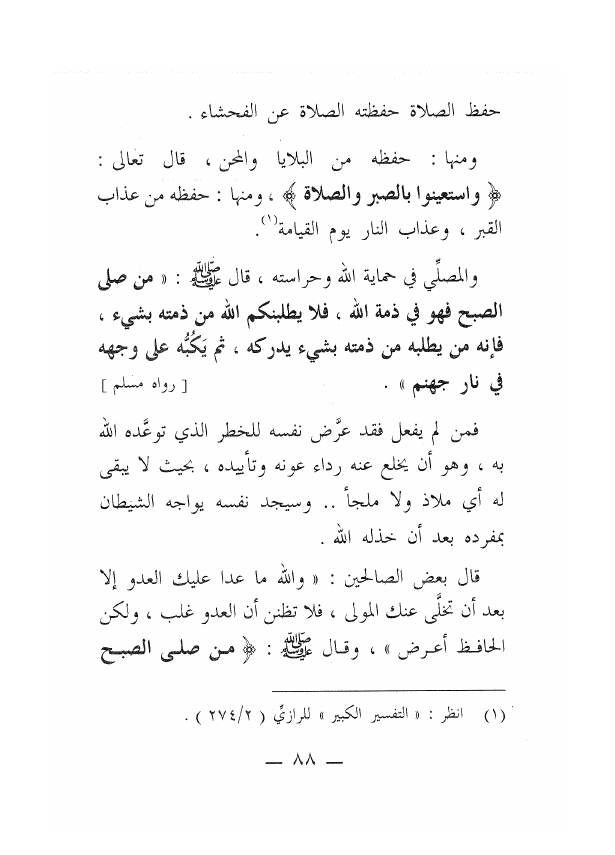 حفظ الصلاة حفظته الصلاة عن الفحشاء .
ومنها : حفظه من البلايا والمحن ، قال تعالى :
﴿ واستعينوا بالصبر والصلاة ﴾ ، ومنها : حفظه من عذاب
القبر ، وعذاب النار يوم القيامة(١).
والمصلِّي في حماية الله وحراسته ، قال ﷺ : « من صلى
الصبح فهو في ذمة الله ، فلا يطلبنكم الله من ذمته بشيء ،
فإنه من يطلبه من ذمته بشيء يدركه ، ثم يَكُبُّه على وجهه
في نار جهنم » . [ رواه مسلم ]
فمن لم يفعل فقد عرَّض نفسه للخطر الذي توعَّده الله
به ، وهو أن يخلع عنه رداء عونه وتأييده ، بحيث لا يبقى
له أي ملاذ ولا ملجأ .. وسيجد نفسه يواجه الشيطان
بمفرده بعد أن خذله الله .
قال بعض الصالحين : « والله ما عدا عليك العدو إلا
بعد أن تخلَّى عنك المولى ، فلا تظنن أن العدو غلب ، ولكن
الحافظ أعرض » ، وقال ﷺ : ﴿ من صلى الصبح
(١) انظر : « التفسير الكبير » للرازيِّ ( ٢٧٤/٢ ) .
— ٨٨ —